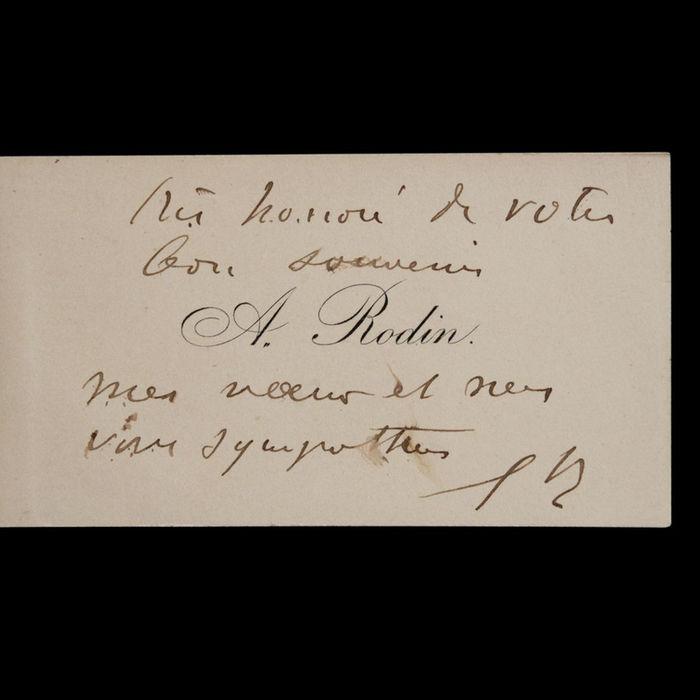 Très honoré de votre
bon souvenir
A. Rodin.
mes voeux et mes
vives sympathies
AR